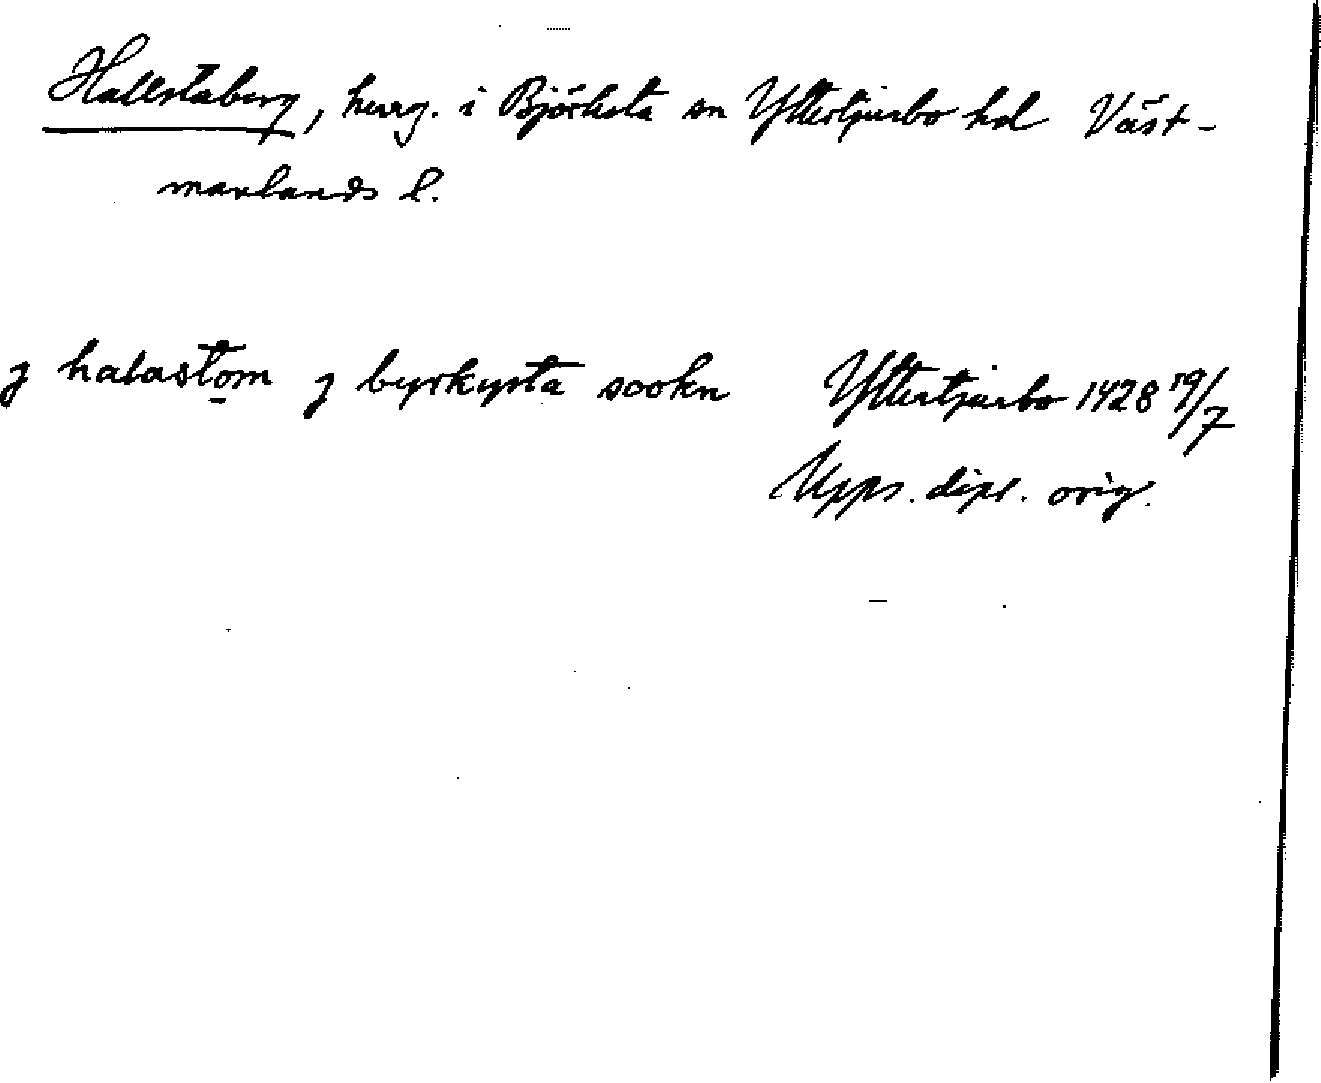 Hallstaberg, herrg. i Björksta sn Yttertjurbo hd Väst-
manlands l.
j halastom j byrkysta sookn Yttertjurbo 1428 19/7
Upps. dipl. orig.